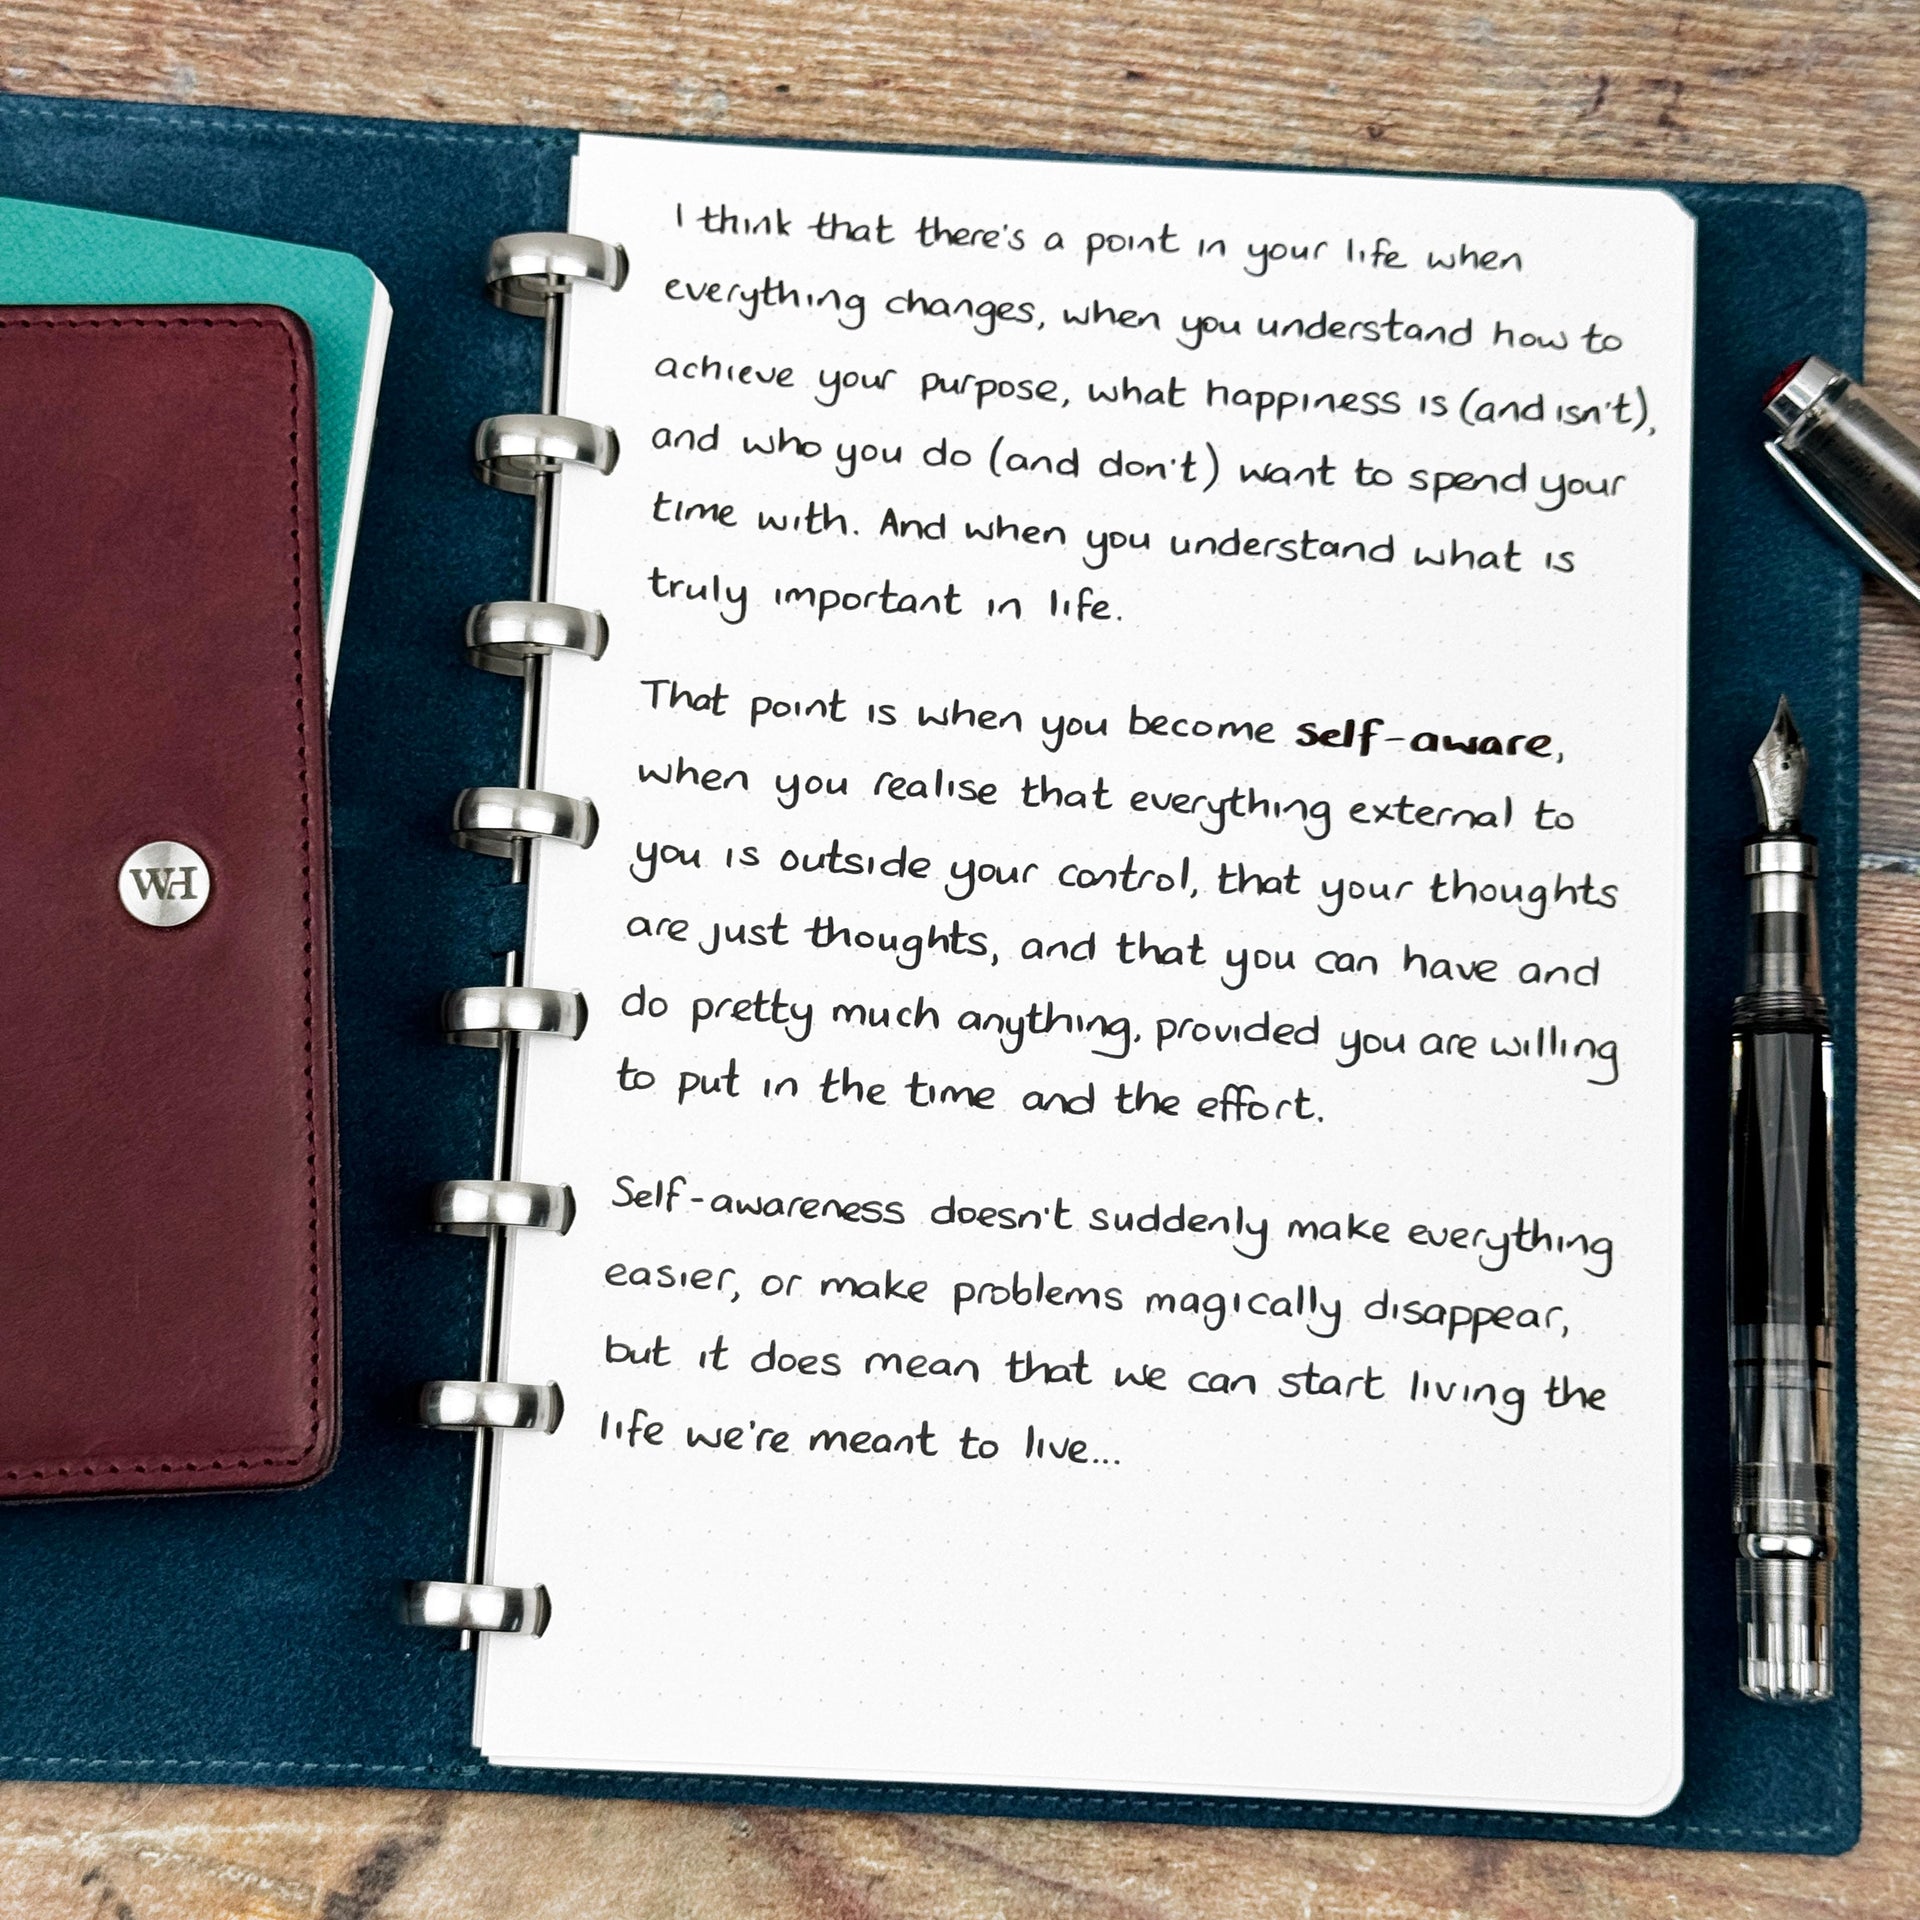 I think that there's a point in your life when
everything changes, when you understand how to
achieve your purpose, what happiness is (and isn't),
and who you do (and don't) want to spend your
time with. And when you understand what is
truly important in life.
That point is when you become self-aware,
when you realise that everything external to
you is outside your control, that your thoughts
are just thoughts, and that you can have and
do pretty much anything, provided you are willing
to put in the time and the effort.
Self-awareness doesn't suddenly make everything
easier, or make problems magically disappear,
but it does mean that we can start living the
life we're meant to live...
WH